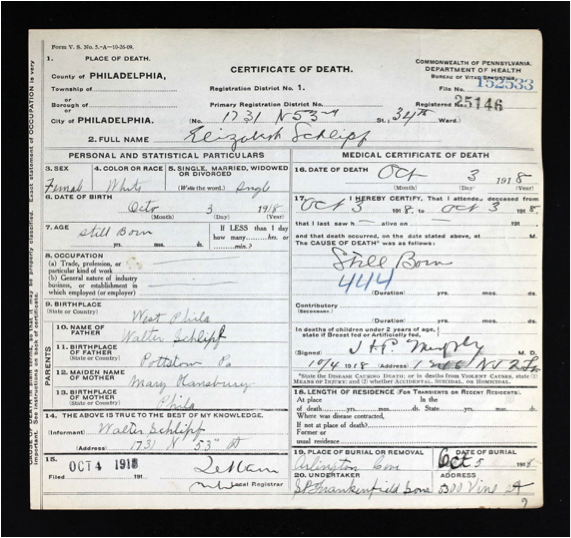 Form V. S. No. 5.-A-10-26-09.
1. PLACE OF DEATH.
County of PHILADELPHIA,
Township of
or
Borough of
or
City of PHILADELPHIA.
CERTIFICATE OF DEATH.
Registration District No. 1.
Primary Registration District No.
(No. 1731 N 53rd St., 34th Ward.)
COMMONWEALTH OF PENNSYLVANIA.
DEPARTMENT OF HEALTH
BUREAU OF VITAL STATISTICS
File No. 152533
Registered No. 25146
2. FULL NAME Elizabeth Schlipf
PERSONAL AND STATISTICAL PARTICULARS
3. SEX Female
4. COLOR OR RACE White
5. SINGLE, MARRIED, WIDOWED OR DIVORCED
(Write the word.) Single
6. DATE OF BIRTH
Octo 3 1918
(Month) (Day) (Year)
7. AGE Still Born
yrs. mos. ds.
If LESS than 1 day
how many hrs. or
min.?
8. OCCUPATION
(a) Trade, profession, or
particular kind of work
(b) General nature of industry
business, or establishment in
which employed (or employer)
9. BIRTHPLACE
(State or Country) West Phila
PARENTS
10. NAME OF
FATHER Walter Schlipf
11. BIRTHPLACE
OF FATHER
(State or Country) Pottstown Pa
12. MAIDEN NAME
OF MOTHER Mary Hansbury
13. BIRTHPLACE
OF MOTHER
(State or Country) Phila
14. THE ABOVE IS TRUE TO THE BEST OF MY KNOWLEDGE.
(Informant) Walter Schlipf
(Address) 1731 N 53rd St
15. OCT 4 1918
Filed 191
Local Registrar
MEDICAL CERTIFICATE OF DEATH
16. DATE OF DEATH
Oct 3 1918
(Month) (Day) (Year)
17. I HEREBY CERTIFY, That I attended deceased from
Oct 3 1918, to Oct 3 1918.
that I last saw h alive on 191
and that death occurred, on the date stated above, at M.
The CAUSE OF DEATH* was as follows:
Still Born
444
(Duration) yrs. mos. ds.
Contributory
(Secondary)
(Duration) yrs. mos. ds.
In deaths of children under 2 years of age,
state if Breast fed or Artificially fed,
(Signed) Murphy M. D.
10/4 1918 (Address)
*State the DISEASE CAUSING DEATH; or in deaths from VIOLENT CAUSES, state (1)
MEANS OF INJURY; and (2) whether ACCIDENTAL, SUICIDAL, or HOMICIDAL.
18. LENGTH OF RESIDENCE (FOR TRANSIENTS OR RECENT RESIDENTS).
At place In the
of death yrs. mos. ds. State yrs. mos. ds.
Where was disease contracted,
if not at place of death?
Former or
usual residence
19. PLACE OF BURIAL OR REMOVAL
Arlington Cem
DATE OF BURIAL
Oct 5 1918
20. UNDERTAKER
Frankenfield Sons
ADDRESS
Vine St